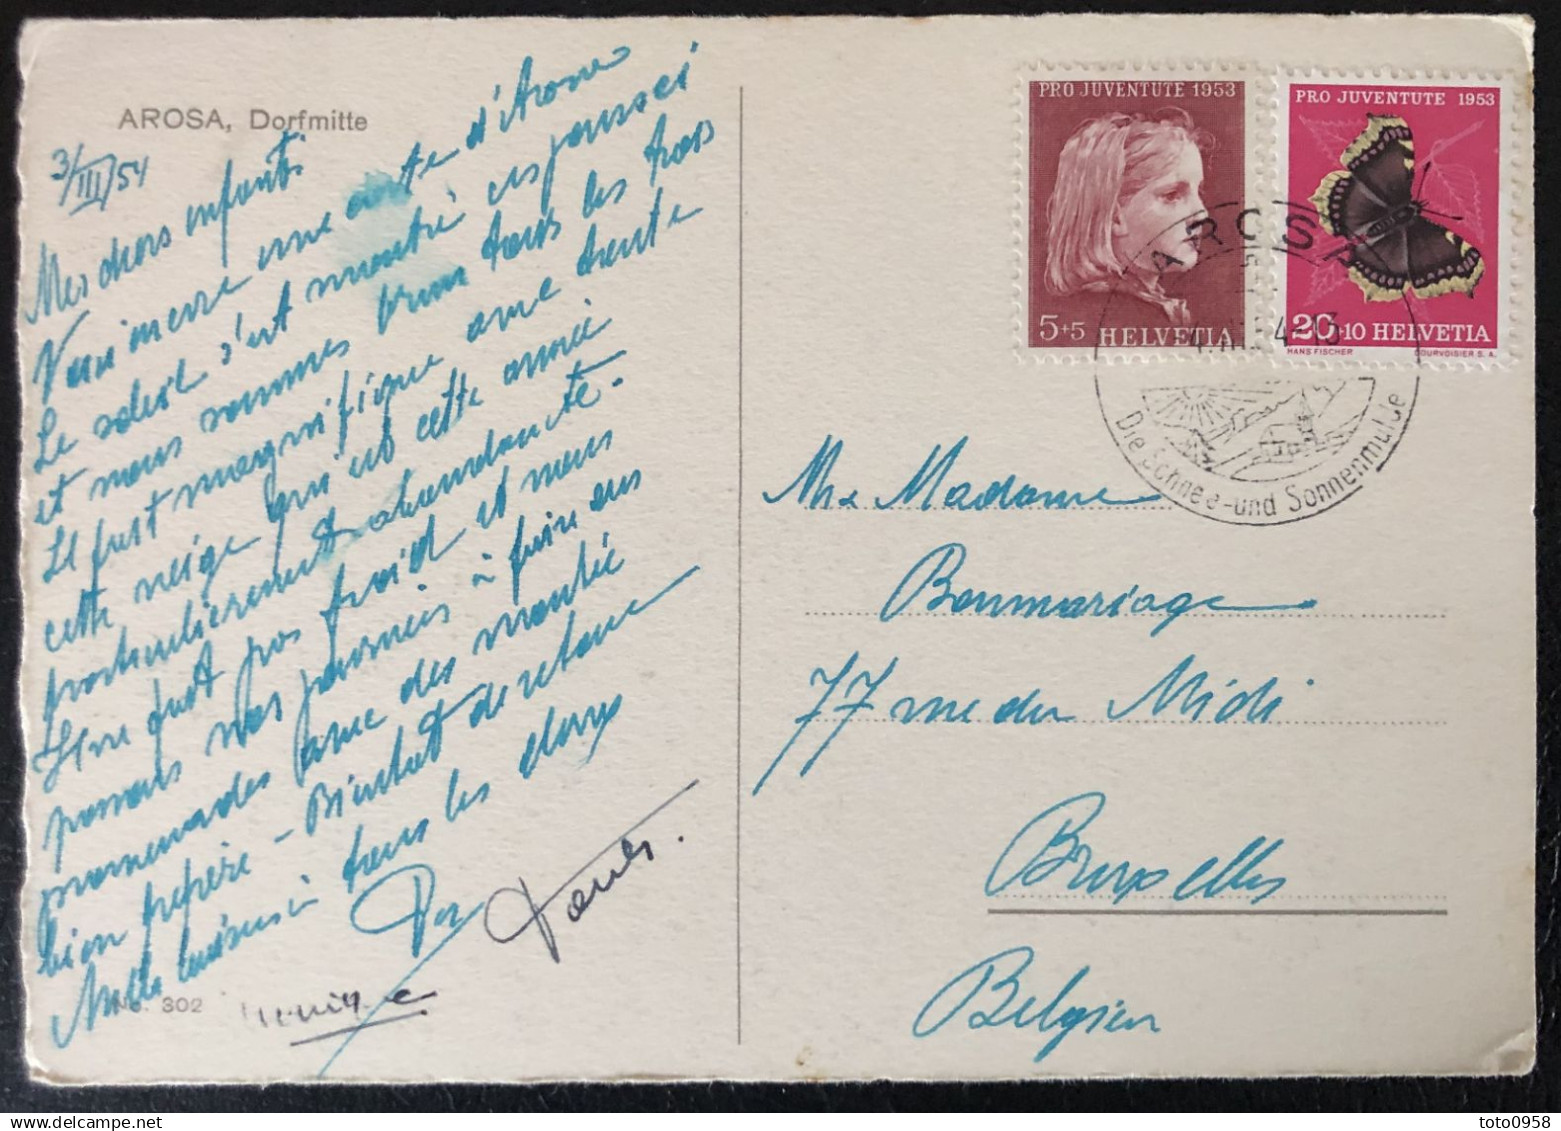 AROSA, Dorfmitte
3/III/54
Mes chers enfants
Voici encore une carte d'Arosa
Le soleil s'est montré ces jours ci
et nous sommes brun tous les trois
Il fait magnifique avec toute
cette neige qui est cette année
particulièrement abondante.
Il ne fait pas froid et nous
passons nos journées à faire des
promenades avec des montée
bien - Bientôt de retour
Mille baisers à tous les deux
No. 302
PRO JUVENTUTE 1953
5+5 HELVETIA
PRO JUVENTUTE 1953
20+10 HELVETIA
HANS FISCHER COURVOISIER S.A.
AROSA
Die Schnee- und Sonnenmulde
Mr & Madame
Bonmariage
77 rue du Midi
Bruxelles
Belgien
toto0958